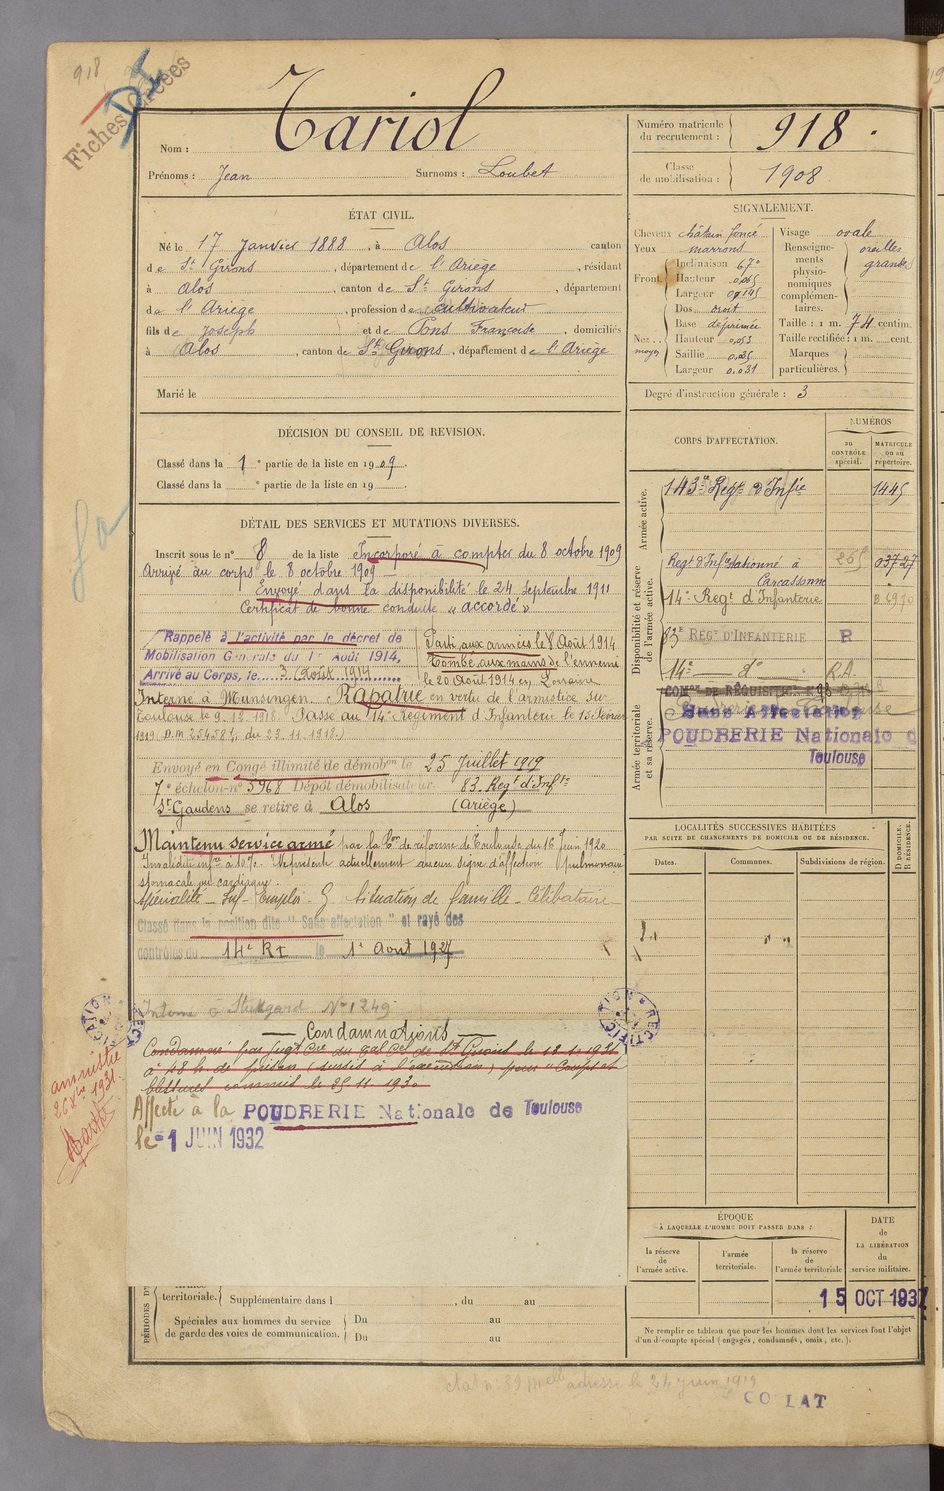 918
DI
Fiches Créées
Nom : Tariol
Prénoms : Jean Surnoms : Loubet
Numéro matricule du recrutement : 918.
Classe de mobilisation : 1908
ÉTAT CIVIL.
Né le 17 Janvier 1888, à Alos canton
de St Girons, département de l'Ariège, résidant
à Alos, canton de St Girons, département
de l'Ariège, profession de cultivateur
fils de Joseph et de Pons Françoise, domiciliés
à Alos, canton de St Girons, département de l'Ariège
Marié le
SIGNALEMENT.
Cheveux châtain foncé
Yeux marrons
Front
Inclinaison 67°
Hauteur 0,065
Largeur 0,145
Nez.. moyen
Dos droit
Base déprimée
Hauteur 0,053
Saillie 0,025
Largeur 0,031
Visage ovale
Renseignements physionomiques complémentaires. oreilles grandes
Taille : 1 m. 74 centim.
Taille rectifiée : 1 m. cent.
Marques particulières.
Degré d'instruction générale : 3
DÉCISION DU CONSEIL DE REVISION.
Classé dans la 1e partie de la liste en 1909.
Classé dans la e partie de la liste en 19
DÉTAIL DES SERVICES ET MUTATIONS DIVERSES.
Inscrit sous le n° 8 de la liste Incorporé à compter du 8 octobre 1909
Arrivé au corps le 8 octobre 1909
Envoyé dans la disponibilité le 24 septembre 1911
Certificat de bonne conduite « accordé »
Rappelé à l'activité par le décret de
Mobilisation Générale du 1er Août 1914,
Arrivé au Corps, le 3 Août 1914
Parti aux armées le 8 Août 1914
Tombé aux mains de l'ennemi
le 20 Août 1914 en Lorraine
Interné à Munsingen. Rapatrié en vertu de l'armistice sur
Toulouse le 9.12.1918. Passé au 14e Régiment d'Infanterie le 15 février
1919. D.M. 25458 du 23.11.1918.)
Envoyé en Congé illimité de démobon le 25 Juillet 1919
7e échelon n° 5968 Dépôt démobilisateur 83. Regt d'Infie
St Gaudens se retire à Alos (Ariège)
Maintenu service armé par la Con de réforme de Toulouse du 16 Juin 1920
Invalidité infre à 10%. Ne présente actuellement aucun signe d'affection pulmonaire
stomacale ou cardiaque.
Spécialité - Inf - Emploi - G. Situation de famille - Célibataire
Classé dans la position dite "Sans affectation" et rayé des
contrôles du 14e RI le 1er Aout 1927
Interné à Stuttgard N° 1249
Condamnations
Condamné par jugt du de St Girons le 12 1 1931
à 48 h. de prison (sursis à l'exécution) pour "Coups et
blessures commis le 25 11 1930
amnistie
26 Xbre 1931.
Affecté à la POUDRERIE Nationale de Toulouse
le - 1 JUIN 1932
CORPS D'AFFECTATION.
NUMÉROS
au CONTRÔLE spécial.
MATRICULE ou au répertoire.
Armée active.
143e Regt d'Infie 1445
Disponibilité et réserve de l'armée active.
Regt d'Inf stationné à Carcassonne 265 03727
14e Regt d'Infanterie B 6970
83e REGT D'INFANTERIE R
14e do R.A.
Armée territoriale et sa réserve.
Sans Affectation
POUDRERIE Nationale d
Toulouse
LOCALITÉS SUCCESSIVES HABITÉES
PAR SUITE DE CHANGEMENTS DE DOMICILE OU DE RÉSIDENCE.
Dates. Communes. Subdivisions de région.
D DOMICILE. R RÉSIDENCE.
ÉPOQUE
À LAQUELLE L'HOMME DOIT PASSER DANS :
la réserve de l'armée active.
l'armée territoriale.
la réserve de l'armée territoriale
DATE de LA LIBÉRATION du service militaire.
15 OCT 1937
territoriale. Supplémentaire dans l , du au
Spéciales aux hommes du service de garde des voies de communication. Du au
Du au
Ne remplir ce tableau que pour les hommes dont les services font l'objet d'un décompte spécial (engagés, condamnés, omis, etc.).
état n° 89 adressé le 24 juin 1919
CO LAT